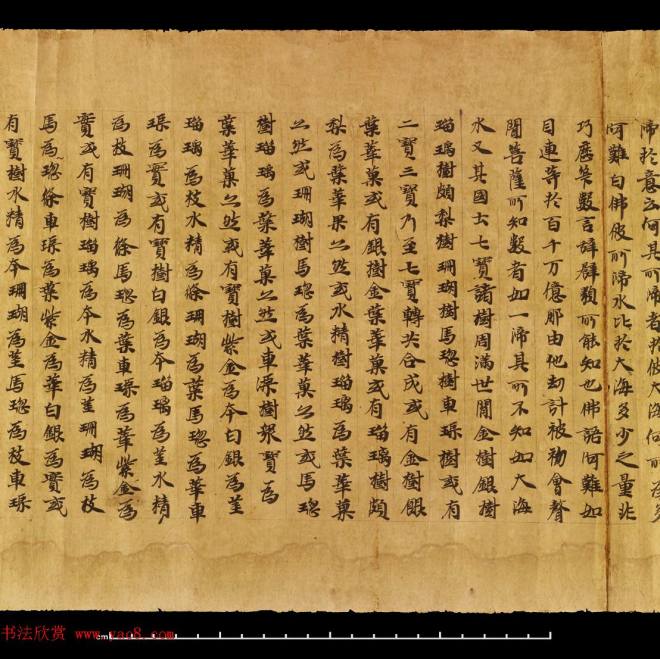 渧於意云何其所渧者於彼大海何所為多
阿難白佛彼所渧水比於大海多少之量非
巧歷筭數言辭譬類所能知也佛語阿難如
目連等於百千万億那由他劫計彼初會聲
聞菩薩所知數者如一渧其所不知如大海
水又其國土七寶諸樹周滿世間金樹銀樹
瑠璃樹頗梨樹珊瑚樹馬瑙樹車璖樹或有
二寶三寶乃至七寶轉共合成或有金樹銀
葉華菓或有銀樹金葉華菓或有瑠璃樹頗
梨為葉華果亦然或水精樹瑠璃為葉華菓
亦然或珊瑚樹馬瑙為葉華菓亦然或馬瑙
樹瑠璃為葉華菓亦然或車璖樹衆寶為
葉華菓亦然或有寶樹紫金為本白銀為莖
瑠璃為枝水精為條珊瑚為葉馬瑙為華車
璖為實或有寶樹白銀為本瑠璃為莖水精
為枝珊瑚為條馬瑙為葉車璖為華紫金為
實或有寶樹瑠璃為本水精為莖珊瑚為枝
馬瑙為條車璖為葉紫金為華白銀為實或
有寶樹水精為本珊瑚為莖馬瑙為枝車璖
书法欣赏 www.yac8.com
cm